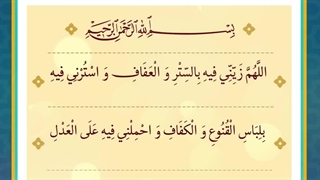 بِسْمِ اللهِ الرَّحْمٰنِ الرَّحِيْمِ
اللَّهُمَّ زَيِّنِّي فِيهِ بِالسِّتْرِ وَ الْعَفَافِ وَ اسْتُرْنِي فِيهِ
بِلِبَاسِ الْقُنُوعِ وَ الْكَفَافِ وَ احْمِلْنِي فِيهِ عَلَى الْعَدْلِ